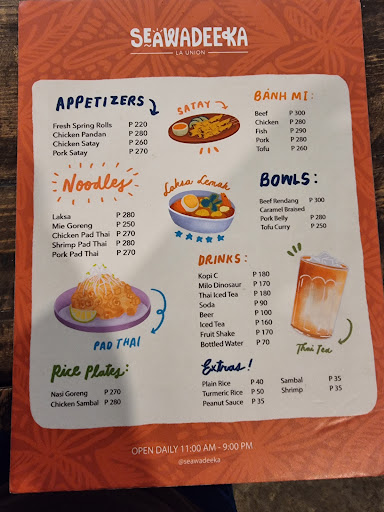 SEAWADEEKA
LA UNION
APPETIZERS
Fresh Spring Rolls P 220
Chicken Pandan P 280
Chicken Satay P 260
Pork Satay P 270
SATAY
BÁNH MÌ:
Beef P 300
Chicken P 280
Fish P 290
Pork P 280
Tofu P 260
Noodles
Laksa P 280
Mie Goreng P 250
Chicken Pad Thai P 270
Shrimp Pad Thai P 280
Pork Pad Thai P 270
Laksa Lemak
BOWLS:
Beef Rendang P 300
Caramel Braised
Pork Belly P 280
Tofu Curry P 250
PAD THAI
DRINKS:
Kopi C P 180
Milo Dinosaur P 170
Thai Iced Tea P 180
Soda P 90
Beer P 100
Iced Tea P 160
Fruit Shake P 170
Bottled Water P 70
Thai Tea
Rice Plates:
Nasi Goreng P 270
Chicken Sambal P 280
Extras!
Plain Rice P 40
Turmeric Rice P 50
Peanut Sauce P 35
Sambal P 35
Shrimp P 35
OPEN DAILY 11:00 AM - 9:00 PM
@seawadeeka